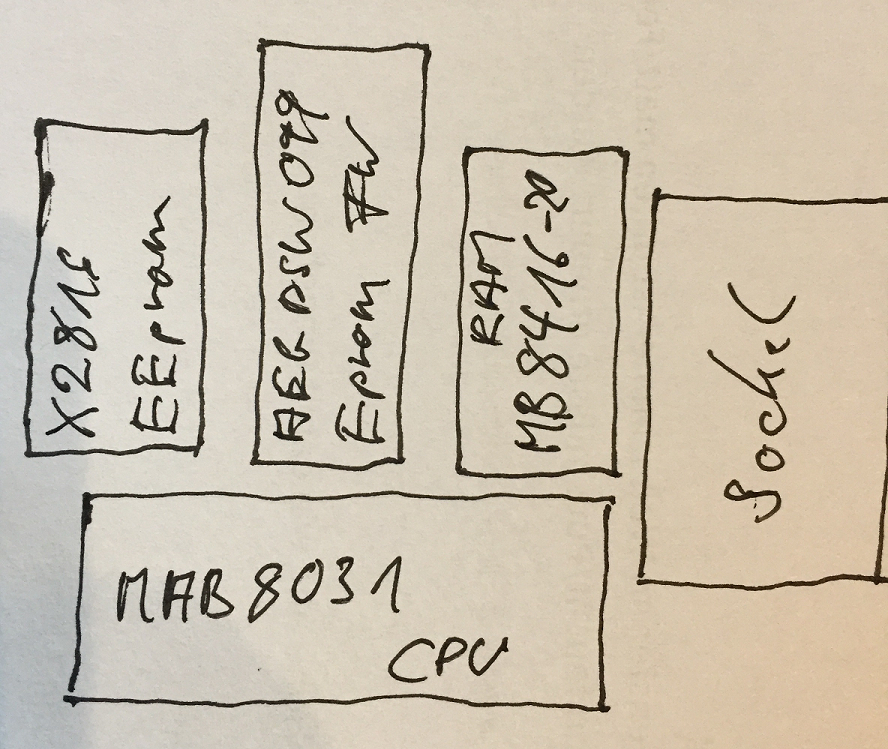 X2816
EEprom
AEGDSW029
Eprom FW
RAM
MB8416-20
Sockel
MAB8031
CPU